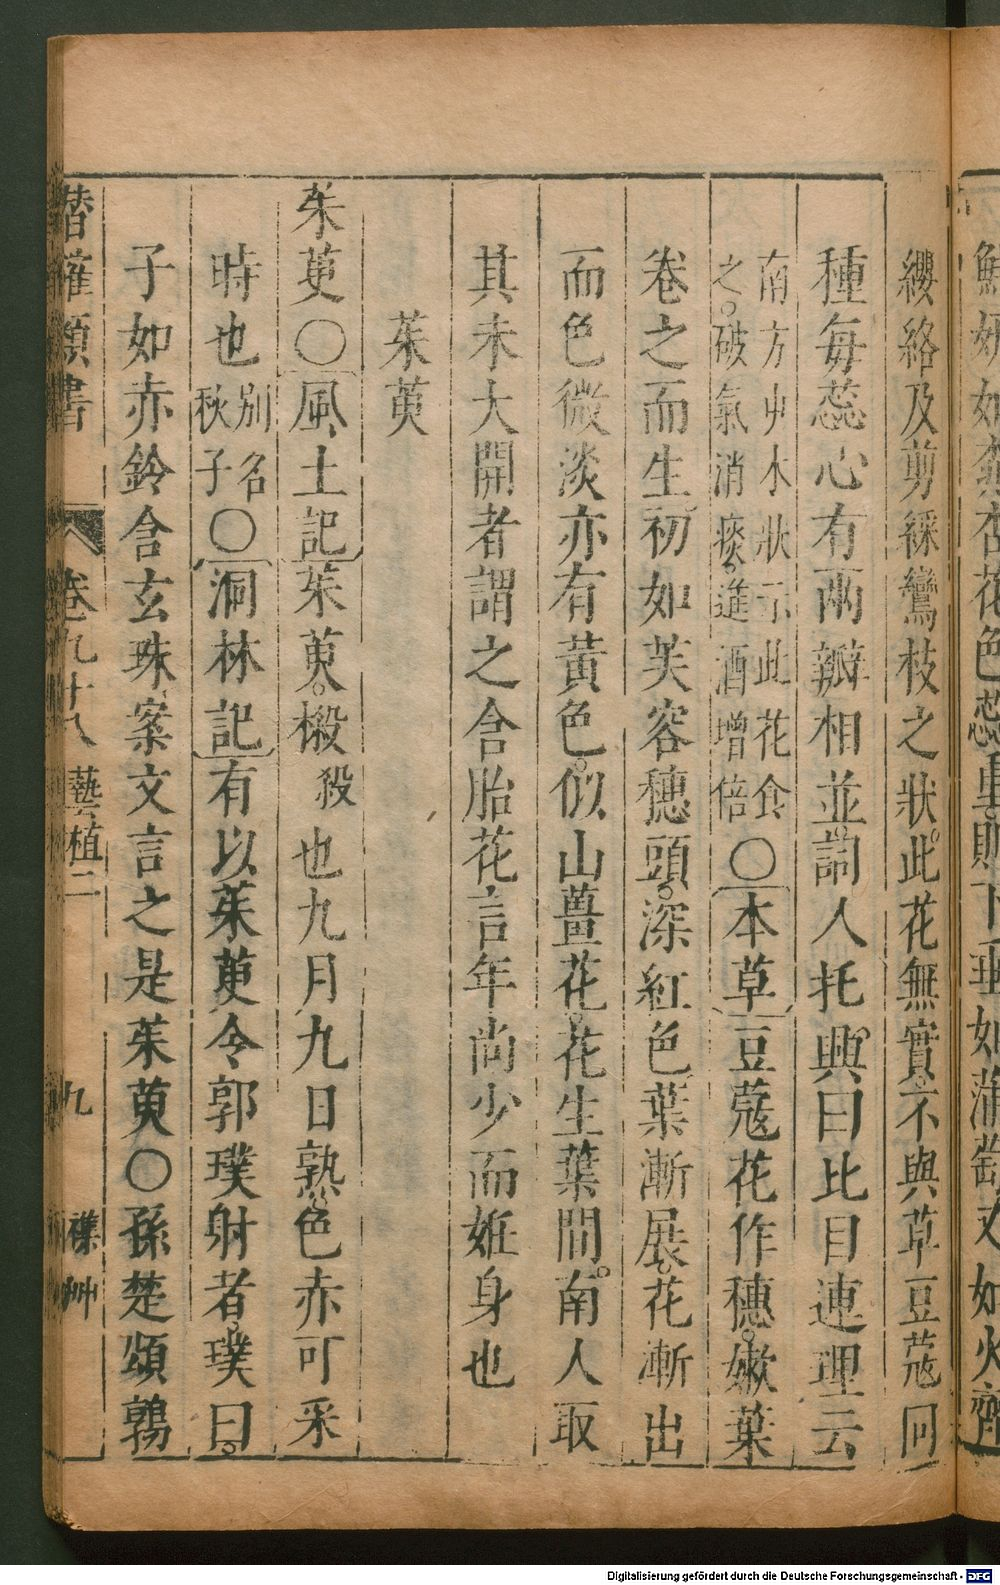 鮮妍如桃杏花色蕊重則下垂如蒲萄又如火齊
纓絡及剪綵鸞枝之狀此花無實不與草豆蔻同
種每蕊心有兩瓣相並詞人托興曰比目連理云
南方艸木狀云此花食
之破氣消痰進酒增倍
〇本草豆蔻花作穗嫩葉
卷之而生初如芙容穗頭深紅色葉漸展花漸出
而色微淡亦有黃色似山薑花花生葉間南人取
其未大開者謂之含胎花言年尚少而姙身也
茱萸
茱萸〇風土記茱萸樧
殺
也九月九日熟色赤可采
時也
別名
秋子
〇洞林記有以茱萸令郭璞射者璞曰
子如赤鈴含玄珠案文言之是茱萸〇孫楚頌鶉
潛確類書 卷九十八 藝植二 九 襍艸
Digitalisierung gefördert durch die Deutsche Forschungsgemeinschaft - DFG